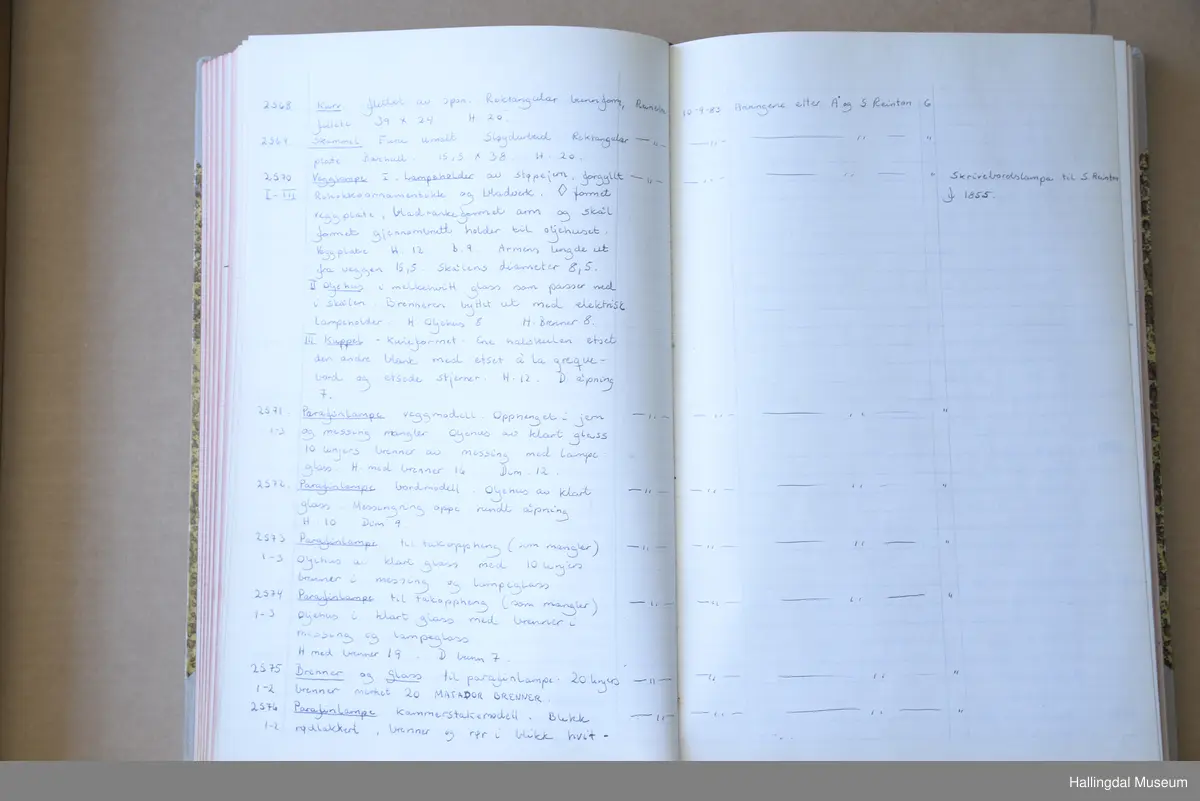 2568 Kurv flettet av spon. Rektangular bunnform, 10-9-83 Arvingene etter Å og S Reinton G
flettet 39 x 24 H. 20.
2569 Skammel Furu umalt Sløydarbeid Rektangular — " — — " — — " — "
plate Beinhull. 15,5 x 38. H. 20.
2570 Vegglampe I - Lampeholder av støpejern, forgyllt — " — — " — — " — " Skrivebordslampa til S. Reinton
I-III Rokokkoornamentikk og bladverk. ◊ formet f 1855.
veggplate, bladrankeformet arm og skål
formet gjennombrutt holder til oljehuset.
Veggplate H. 12 b. 9. Armens lengde ut
fra veggen 15,5. Skålens diameter 8,5.
II Oljehus i melkehvitt glass som passer ned
i skålen. Brenneren byttet ut med elektrisk
Lampeholder. H Oljehus 8 H. Brenner 8.
III Kuppel - Kuleformet. Ene halvkulen etset
den andre blank med etset à la greque-
bord og etsede stjerner. H. 12. D åpning
7.
2571 Parafinlampe veggmodell. Opphenget i jern — " — — " — — " — "
1-3 og messing mangler Oljehus av klart glass
10 linjers brenner av messing med lampe
glass. H med brenner 16 Dm. 12.
2572 Parafinlampe bordmodell. Oljehus av klart — " — — " — — " — "
glass. Messingring oppe rundt åpning
H 10 Dm 9
2573 Parafinlampe til takoppheng (som mangler) — " — — " — — " — "
1-3 Oljehus av klart glass med 10 linjers
brenner i messing og lampeglass
2574 Parafinlampe til takoppheng (som mangler) — " — — " — — " — "
1-3 Oljehus i klart glass med brenner i
messing og lampeglass
H med brenner 19. D bunn 7.
2575 Brenner og glass til parafinlampe. 20 linjers — " — — " — — " — "
1-2 brenner merket 20 MATADOR BRENNER.
2576 Parafinlampe Kammerstakemodell. Blikk — " — — " — — " — "
1-2 rødlakkert, brenner og rør i blikk hvit-
Hallingdal Museum